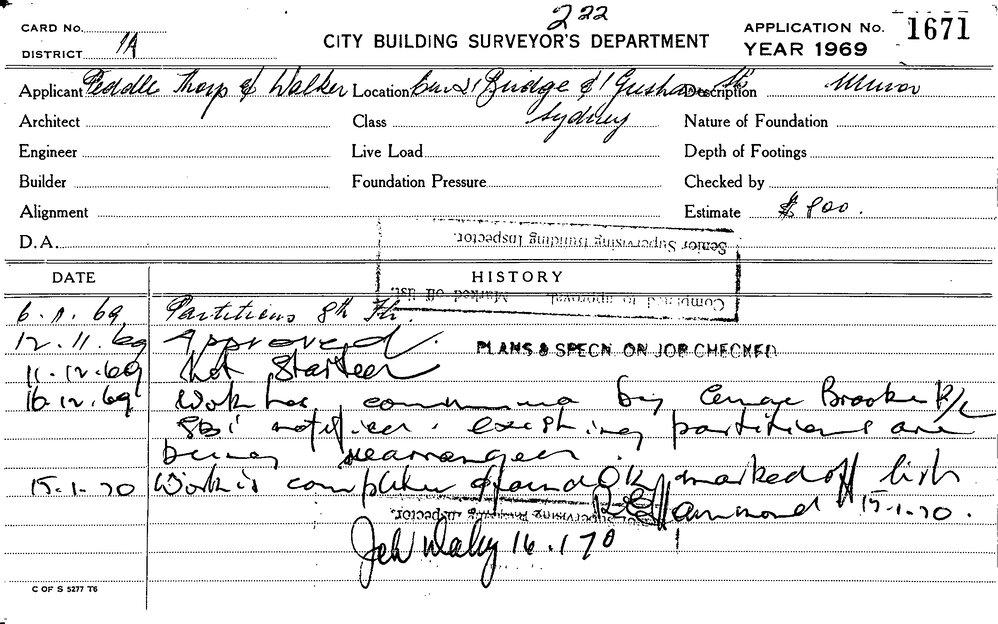 222
CARD No.
DISTRICT 1A
CITY BUILDING SURVEYOR'S DEPARTMENT
APPLICATION No. 1671
YEAR 1969
Applicant Peddle Thorp & Walker Location Cnr Bridge & Sts Description Minor
Architect Class Sydney Nature of Foundation
Engineer Live Load Depth of Footings
Builder Foundation Pressure Checked by
Alignment Estimate $800.
D.A.
Senior Supervising Building Inspector.
Completed to approval. Marked off list.
DATE HISTORY
6.11.69 Partitions 8th Flr.
12.11.69 Approved.
PLANS & SPECN. ON JOB CHECKED
11.12.69 Not Started
16.12.69 Work has commenced by Brooker P/L
SBI notified. existing partitions are
being rearranged.
15.1.70 Work is completed & found OK marked off list
Hammond 15.1.70.
Supervising Building Inspector.
16.1.70
C OF S 5277 T6